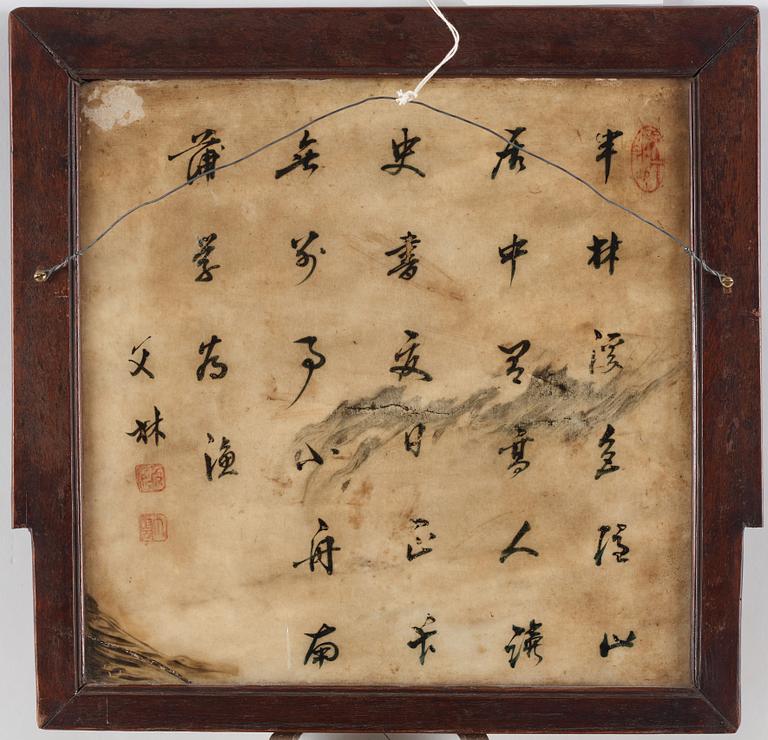 半林溪色隱山
居中有高人讀
史書夏日正長
無別事小舟南
蒲學為漁
林